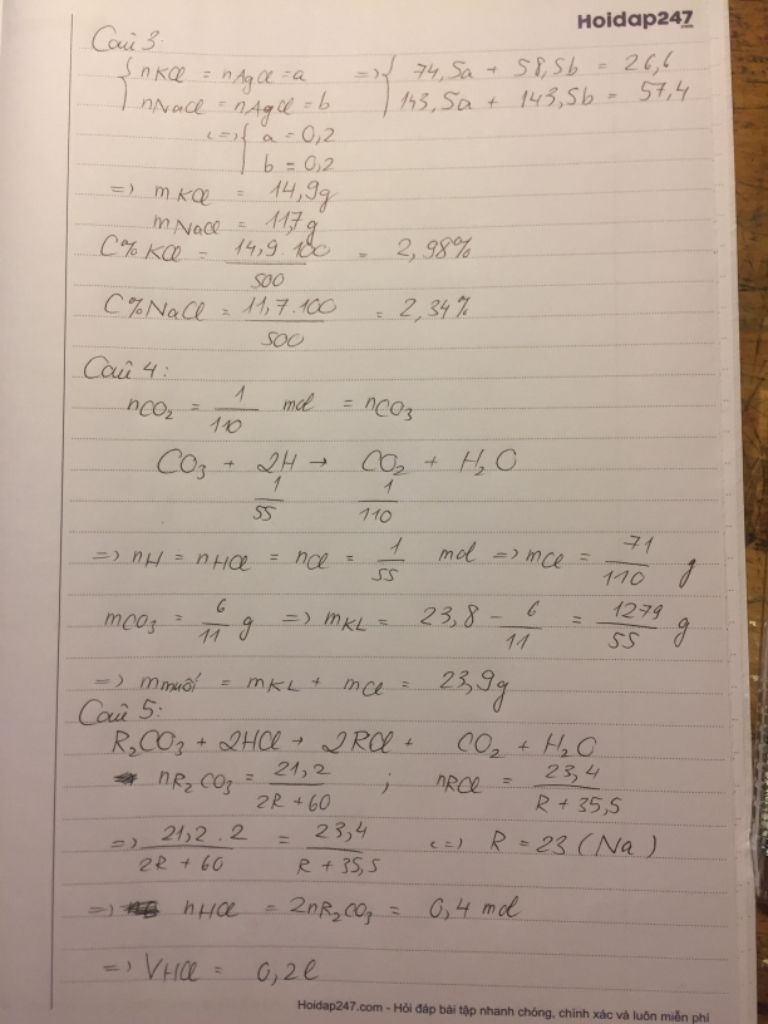 Hoidap247
Câu 3:
{ nKCl = nAgCl = a => { 74,5a + 58,5b = 26,6
nNaCl = nAgCl = b 143,5a + 143,5b = 57,4
<=> { a = 0,2
b = 0,2
=> mKCl = 14,9g
mNaCl = 11,7g
C% KCl = 14,9.100 / 500 = 2,98%
C% NaCl = 11,7.100 / 500 = 2,34%
Câu 4:
nCO2 = 1/110 mol = nCO3
CO3 + 2H → CO2 + H2O
1/55 1/110
=> nH = nHCl = nCl = 1/55 mol => mCl = 71/110 g
mCO3 = 6/11 g => mKL = 23,8 - 6/11 = 1279/55 g
=> mmuối = mKL + mCl = 23,9g
Câu 5:
R2CO3 + 2HCl → 2RCl + CO2 + H2O
nR2CO3 = 21,2 / 2R+60 ; nRCl = 23,4 / R+35,5
=> 21,2.2 / 2R+60 = 23,4 / R+35,5 <=> R = 23 (Na)
=> nHCl = 2nR2CO3 = 0,4 mol
=> VHCl = 0,2l
Hoidap247.com - Hỏi đáp bài tập nhanh chóng, chính xác và luôn miễn phí